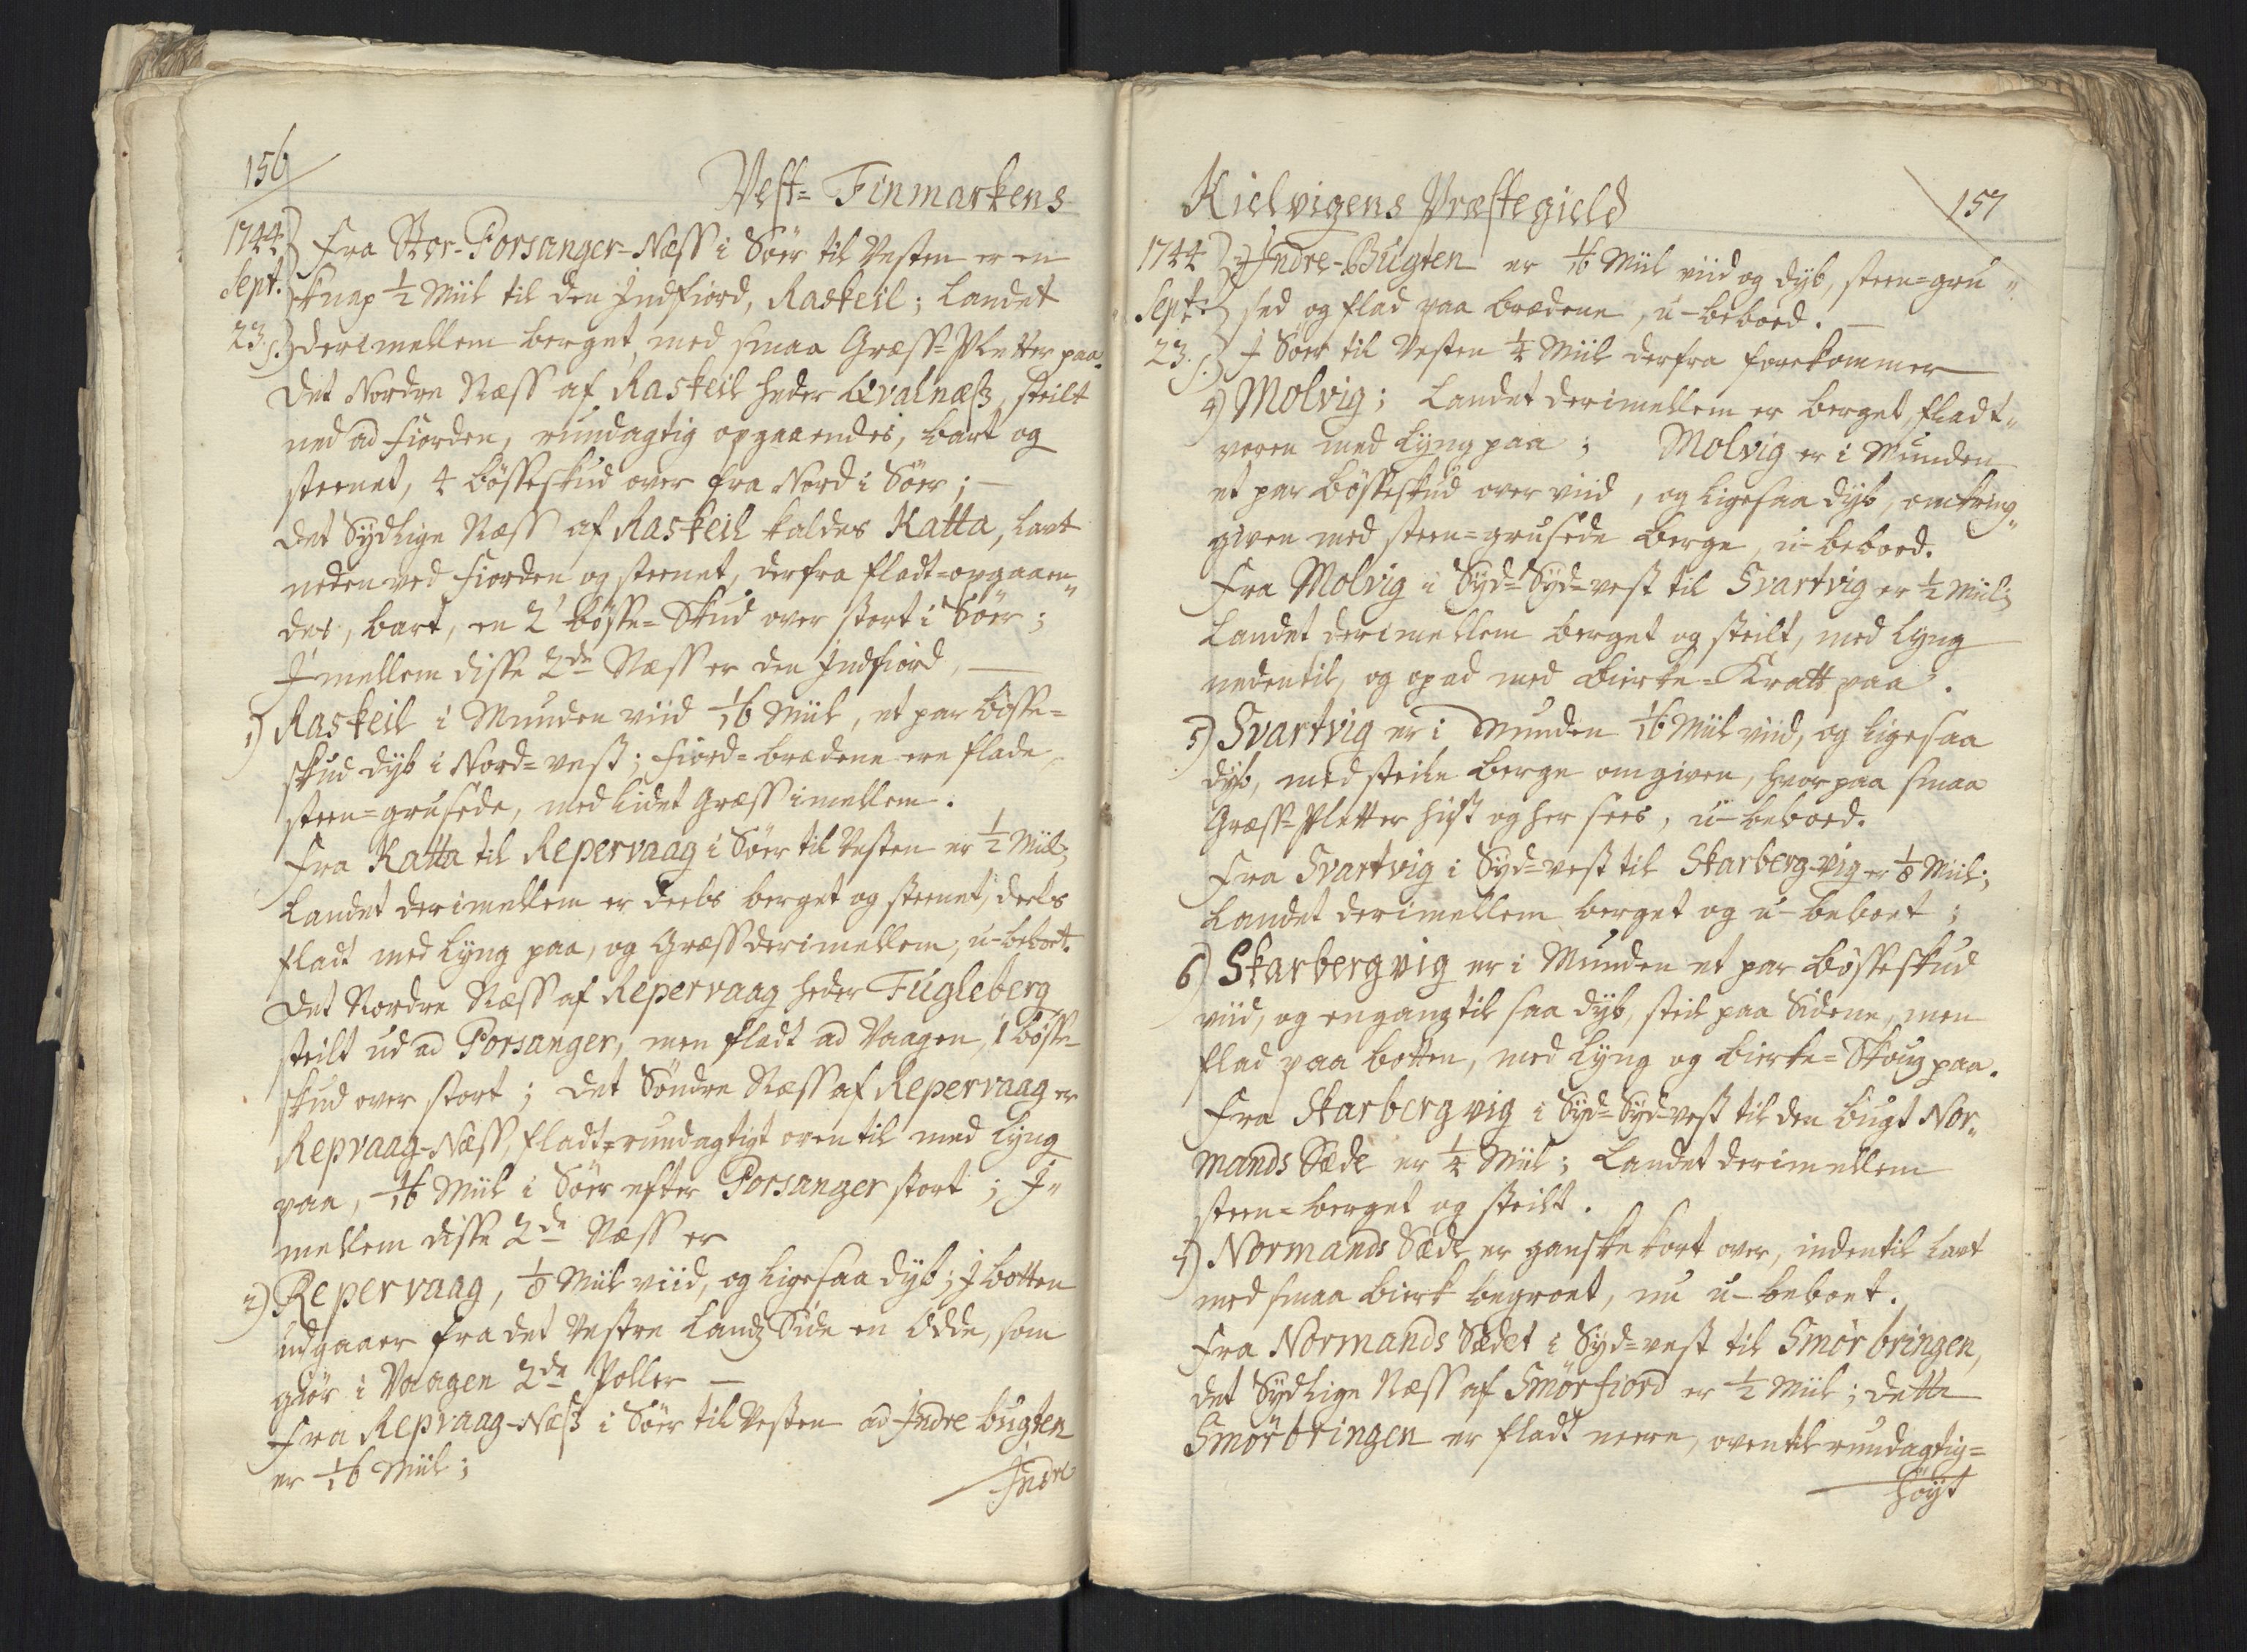 156
Vest= Finmarkens
1744
Sept.
23. s.
Fra Stor-Porsanger-Næss i Söer til Vesten er en
knap 1/2 Miil til den Indfiord, Raskeil; Landet
derimellem berget, med smaa Græss-Pletter paa.
Det Nordre Næss af Raskeil heder Qvalnæss, steilt
ned ad Fiorden, rundagtig opgaaendes, bart og
steenet, 4 bösseskud over fra Nord i Söer; —
Det Sydlige Næss af Raskeil kaldes Katta, lavt
neden ved Fiorden og steenet, derfra fladt-opgaaen„
des, bart, en 2 bösse-Skud over stort i Söer;
Imellem disse 2de Næss er den Indfiord, —
1) Raskeil i Munden viid 1/16 Miil, et par bösse=
skud dyb i Nord=vest; Fiord=bredene ere flade
steen=grusede, med lidet Græss imellem.
Fra Katta til Repervaag i Söer til Vesten er 1/2 Miil;
Landet derimellem er deels berget og steenet, deels
fladt med Lyng paa, og Græss derimellem, u-beboet.
Det Nordre Næss af Repervaag heder Fugleberg
steilt ud ad Porsanger, men fladt ad Vaagen, 1 bösse-
skud over stort; Det Söndre Næss af Repervaag er
Repvaag-Næss, fladt=rundagtigt oventil med Lyng
paa, 1/16 Miil i Söer efter Porsanger stort; I„
mellem disse 2de Næss er
2) Repervaag, 1/8 Miil viid, og ligesaa dyb; I botten
udgaaer fra det Vestre Landz Side en Odde, som
giör i Vaagen 2de Poller —
Fra Repvaag-Næss i Söer til Vesten ad Indre bugten
er 1/16 Miil;
Indre
Kielvigens Præstegield
157
1744
Sept.
23. s.
3) Indre-Bugten er 1/16 Miil viid og dyb, steen=gru„
sed og flad paa bredene, u-beboed. —
I Söer til Vesten 1/4 Miil derfra forekommer
4) Molvig; Landet derimellem er berget, fladt„
voren med Lyng paa; Molvig er i Munden
et par bösseskud over viid, og ligesaa dyb, omkring„
given med steen=grusede berge, u-beboed.
Fra Molvig i Syd=Syd=vest til Svartvig er 1/2 Miil;
Landet derimellem berget og steilt, med Lyng
nedentil, og opad med bierke=Kratt paa.
5) Svartvig er i Munden 1/16 Miil viid, og ligesaa
dyb, med steile berge omgiven, hvorpaa smaa
Græss-Pletter hist og her sees, u-beboed.
Fra Svartvig i Syd=vest til Skarberg-vig er 1/8 Miil;
Landet derimellem berget og u-beboet;
6) Skarbergvig er i Munden et par bösseskud
viid, og engang til saa dyb, steil paa Sidene, men
flad paa botten, med Lyng og bierke=Skoug paa.
Fra Skarbergvig i Syd=Syd-vest til den bugt Nor„
mands Sæde er 1/4 Miil; Landet derimellem
steen=berget og steilt.
7) Normands Sæde er ganske kort over, indentil lavt
med smaa bierk begroet, nu u-beboet.
Fra Normands Sædet i Syd=vest til Smörbringen,
det Sydlige Næss af Smörfiord er 1/2 Miil; dette
Smörbringen er fladt neere, oventil rundagtig=
höyt